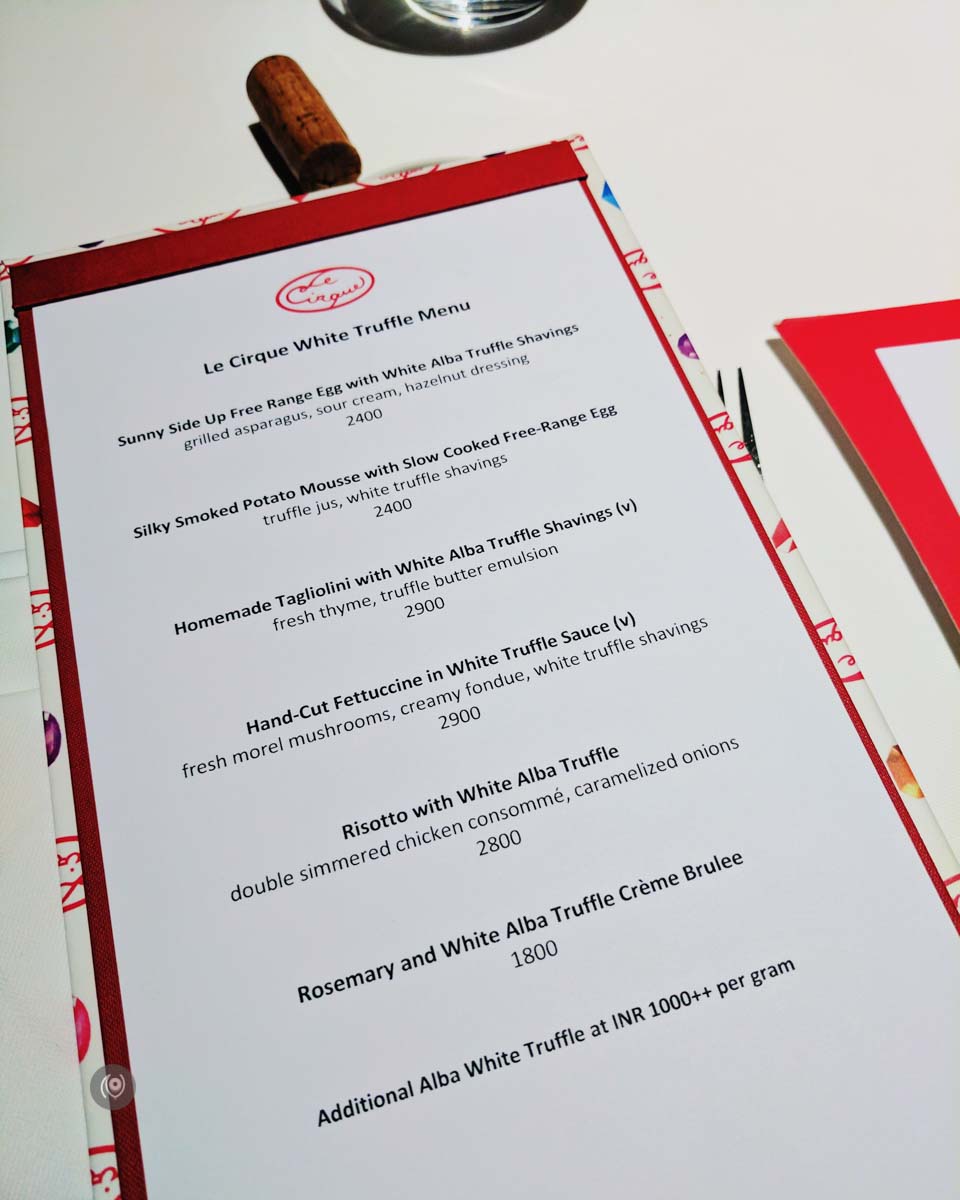 Le
Cirque
Le Cirque White Truffle Menu
Sunny Side Up Free Range Egg with White Alba Truffle Shavings
grilled asparagus, sour cream, hazelnut dressing
2400
Silky Smoked Potato Mousse with Slow Cooked Free-Range Egg
truffle jus, white truffle shavings
2400
Homemade Tagliolini with White Alba Truffle Shavings (v)
fresh thyme, truffle butter emulsion
2900
Hand-Cut Fettuccine in White Truffle Sauce (v)
fresh morel mushrooms, creamy fondue, white truffle shavings
2900
Risotto with White Alba Truffle
double simmered chicken consommé, caramelized onions
2800
Rosemary and White Alba Truffle Crème Brulee
1800
Additional Alba White Truffle at INR 1000++ per gram